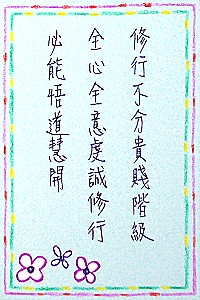 修行不分貴賤階級
全心全意虔誠修行
必能悟道慧開